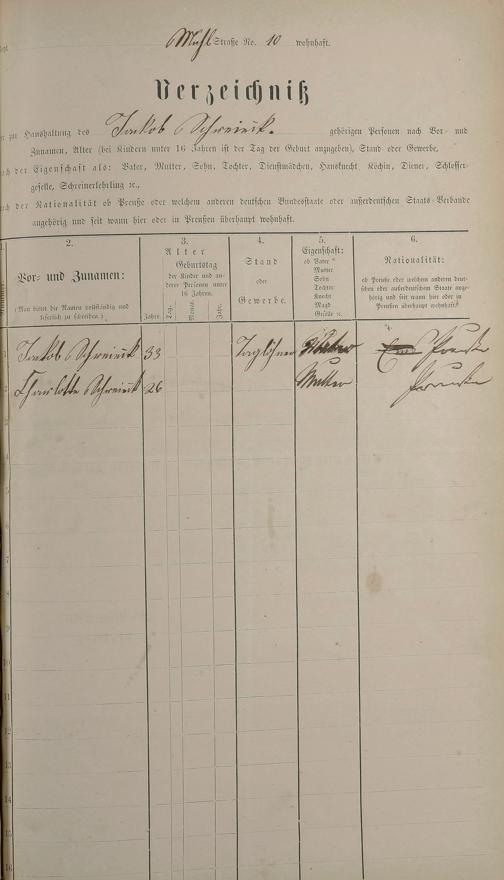 Mühl Straße No. 10 wohnhaft.
Verzeichniß
zur Haushaltung des Jakob Schreieck. gehörigen Personen nach Vor- und
Zunamen, Alter (bei Kindern unter 16 Jahren ist der Tag der Geburt anzugeben), Stand oder Gewerbe,
nach der Eigenschaft als: Vater, Mutter, Sohn, Tochter, Dienstmädchen, Hausknecht, Köchin, Diener, Schlosser-
geselle, Schreinerlehrling ꝛc.,
nach der Nationalität ob Preuße oder welchem anderen deutschen Bundesstaate oder außerdeutschen Staats-Verbande
angehörig und seit wann hier oder in Preußen überhaupt wohnhaft.
2. 3. 4. 5. 6.
Vor- und Zunamen:
(Man bittet die Namen vollständig und
leserlich zu schreiben.)
Alter
Geburtstag
der Kinder und an-
derer Personen unter
16 Jahren.
Jahre. Tag. Monat. Jahr.
Stand
oder
Gewerbe.
Eigenschaft:
ob Vater
Mutter
Sohn
Tochter
Knecht
Magd
Geselle ꝛc.
Nationalität:
ob Preuße oder welchem anderen deut-
schen oder außerdeutschen Staate ange-
hörig und seit wann hier oder in
Preußen überhaupt wohnhaft?
Jakob Schreieck 33 Taglöhner Preuße
Charlotte Schreieck 26 Mutter Preuße
3
4
5
6
7
8
9
10
11
12
13
14
15
16